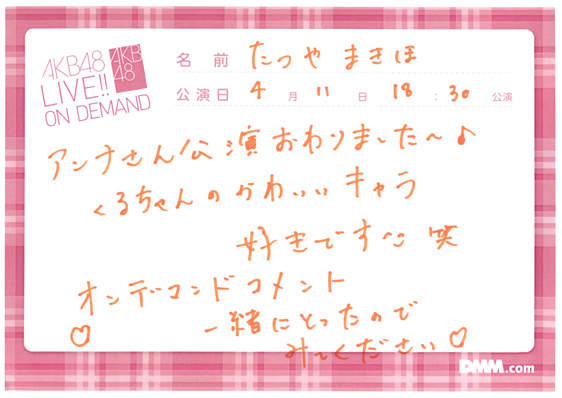 AKB48
LIVE!!
ON DEMAND
AKB
48
名前 たつや まきほ
公演日 4 月 11 日 18 : 30 公演
アンナさん公演おわりました〜♪
くるちゃんのかわいいキャラ
好きです^^ 笑
オンデコンドコメント
一緒にとったので
みてください♡
DMM.com